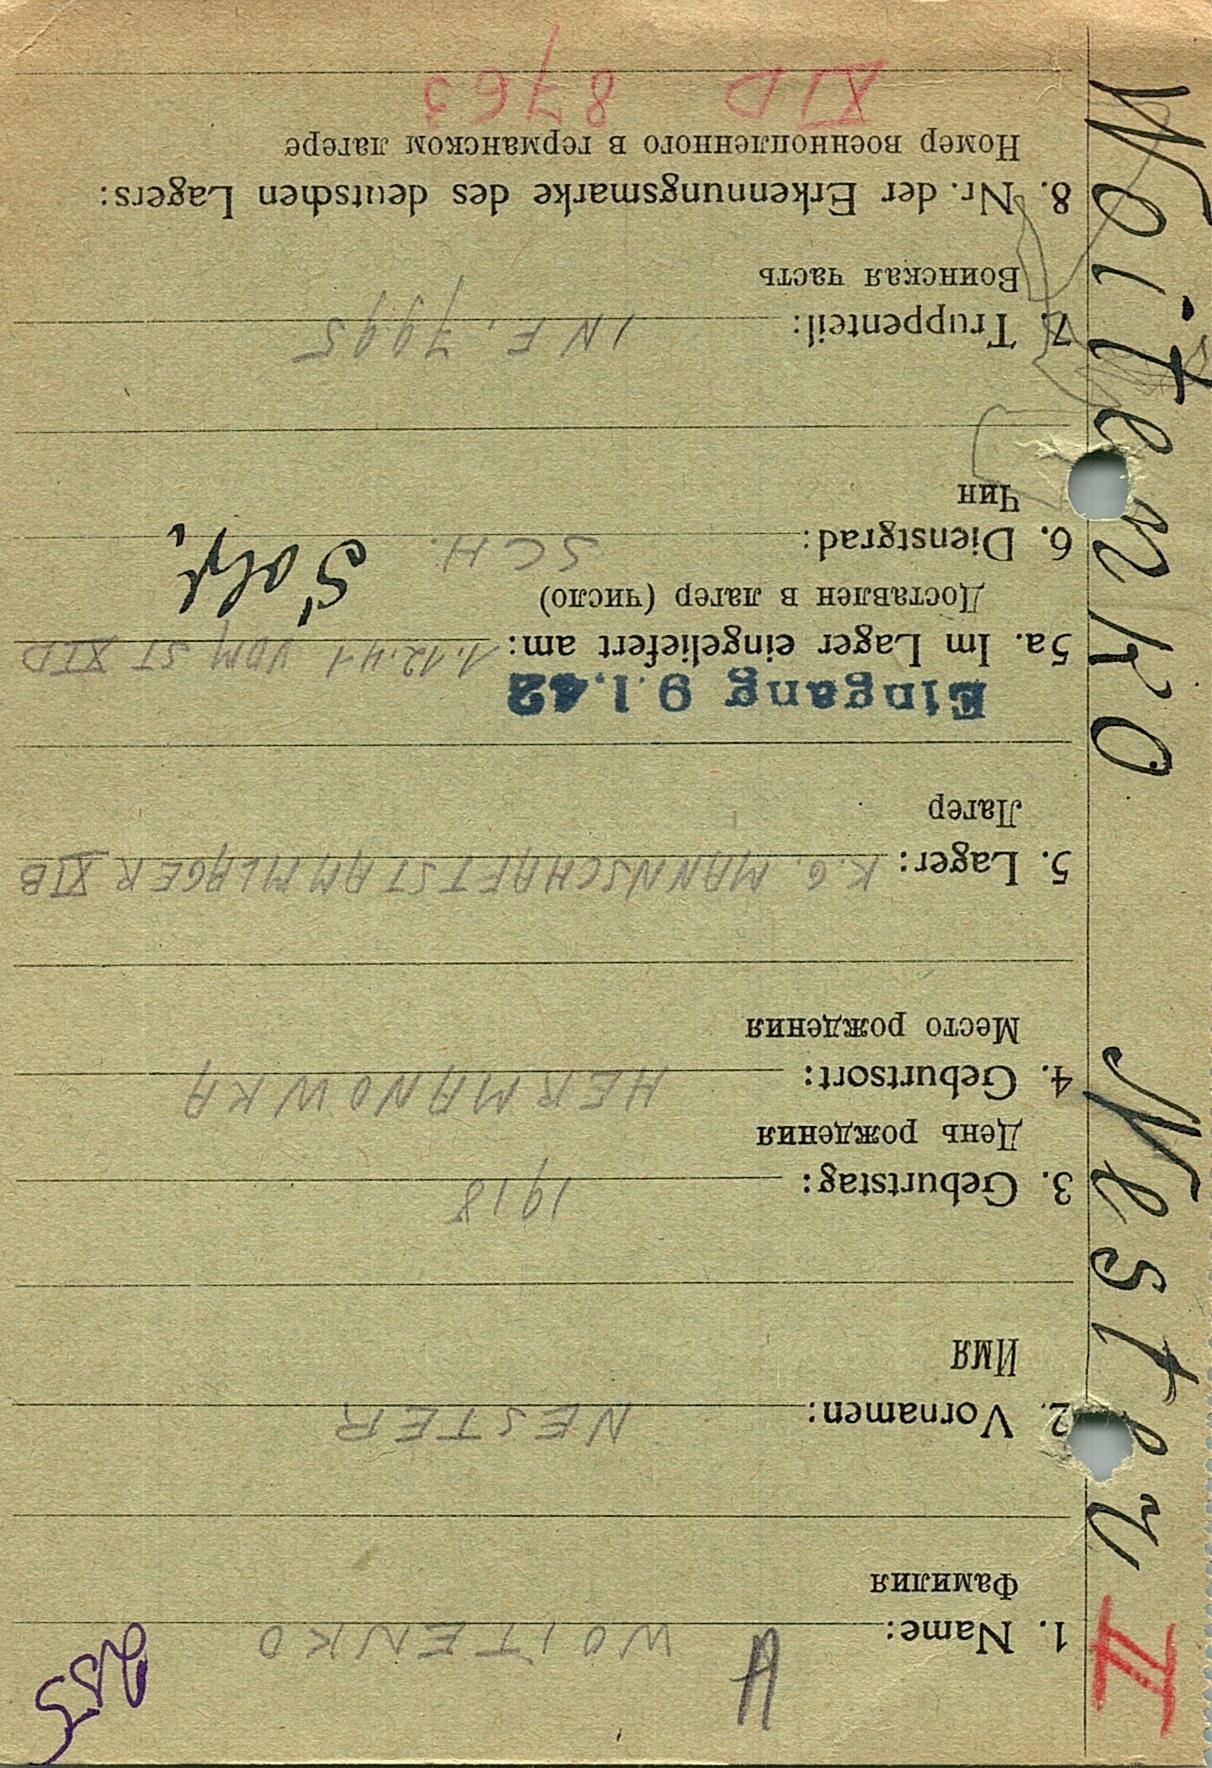 A
1. Name: WOITENKO
Фамилия
2. Vornamen: NESTER
Имя
3. Geburtstag: 1918
День рождения
4. Geburtsort: HERMANOWKA
Место рождения
5. Lager: K.G. MANNSCHAFTSTAMMLAGER XIB
Лагер
Eingang 9.1.42
5a. Im Lager eingeliefert am: 1.12.41 VOM ST XID
Доставлен в лагер (число)
6. Dienstgrad: SCH. Sold.
Чин
7. Truppenteil: INF. 7995
Воинская часть
8. Nr. der Erkennungsmarke des deutschen Lagers:
Номер военнопленного в германском лагере
XID 8763
Woitenko Nester II